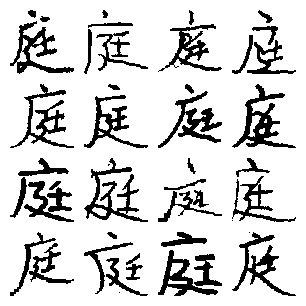 庭庭庭庭
庭庭庭庭
庭庭庭庭
庭庭庭庭